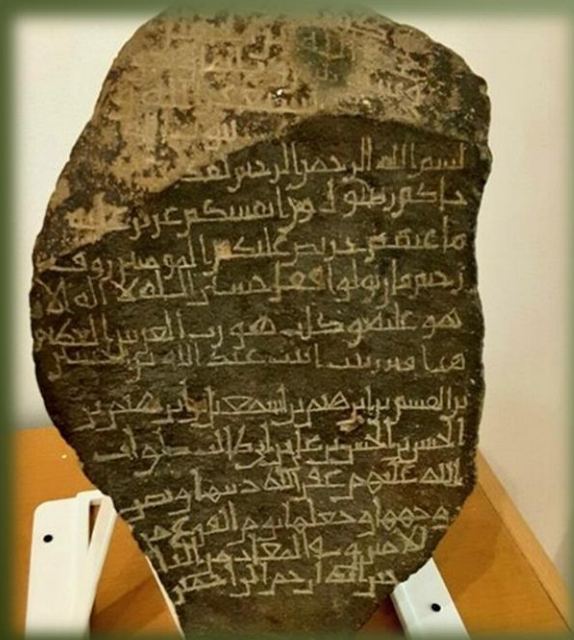 بسم الله الرحمن الرحيم لقد
جاكم رسول من انفسكم عزيز عليه
ما عنتم حريص عليكم بالمومنين روف
رحيم فان تولوا فقل حسبي الله لا اله الا
هو عليه توكلت وهو رب العرش العظيم
هذا قبر زينب ابنت عبد الله بن الحسين
بن القسم بن ابرهيم بن اسمعيل بن ابرهيم بن
الحسن بن الحسن بن علي بن ابي طالب صلوات
الله عليهم غفر الله ذنبها ونضر
وجهها وجعلها يوم الفزع
الامنين
برحمته ارحم الراحمين